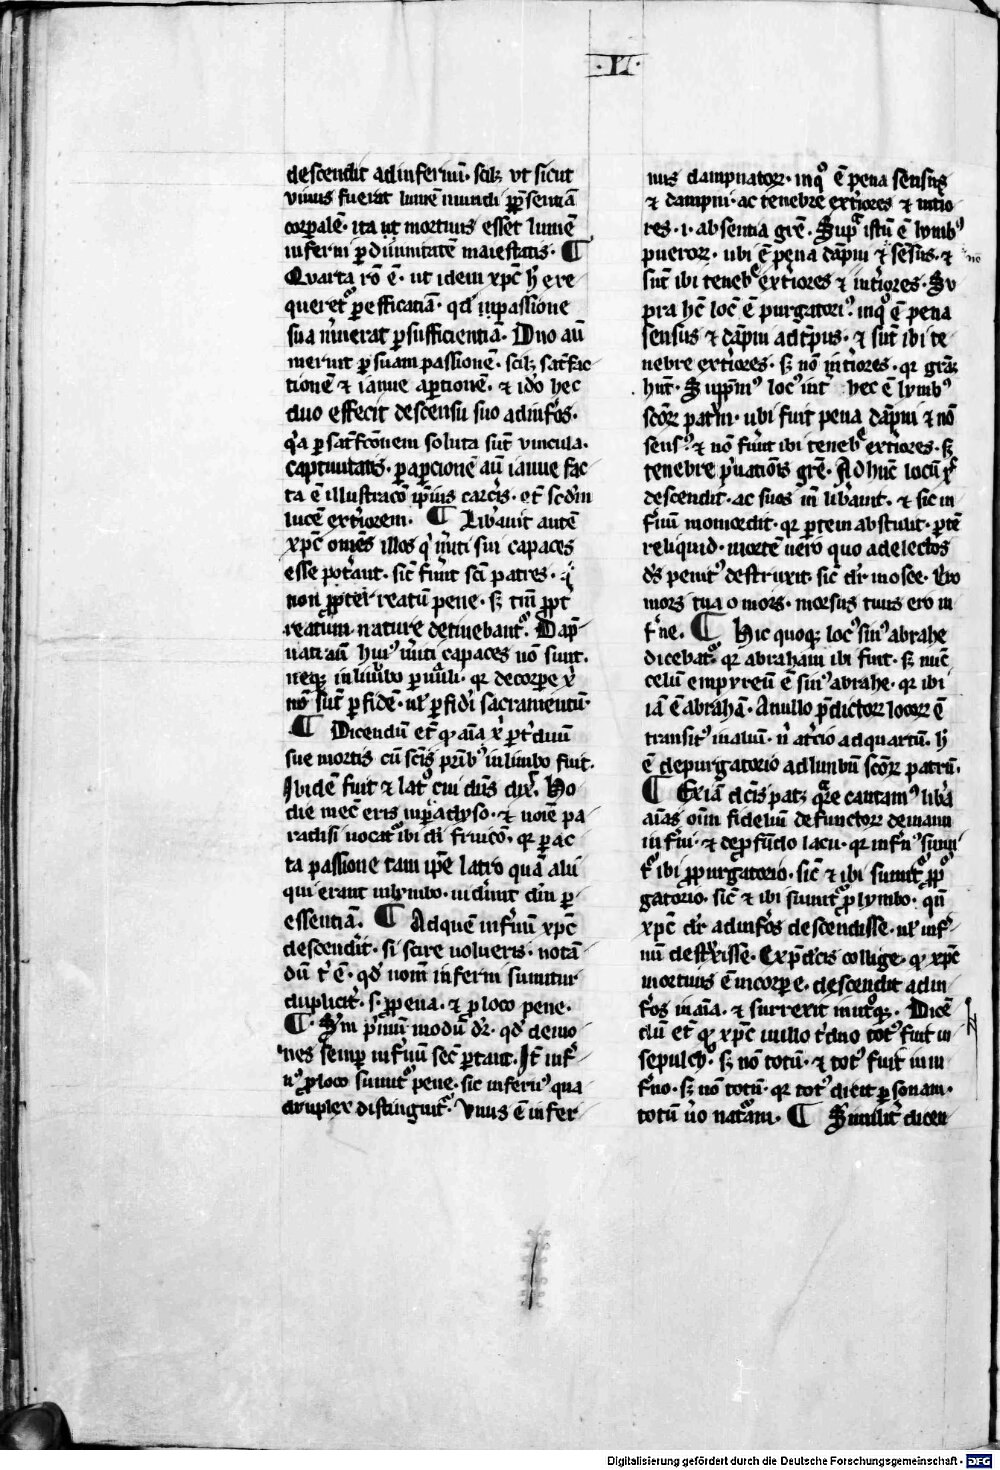 ·IV·
descendit ad infernū· scilꝫ vt sicut
viuus fuerat lumē mundi ꝑ p̄sentiā
corꝑalē· ita ut mortuus esset lumē
inferni ꝑ diuinitatē maiestatis· ¶
Quarta rō ē· ut idem xp̄c h̄ exe
queret᷑ ꝑ efficatiā· qd̓ in passione
sua m̓uerat ꝑ sufficientiā· Duo aū
meruit ꝑ suam passionē· scilꝫ satⁱfac
tionē ⁊ ianue aꝑtionē· ⁊ iđo hec
duo effecit descensu suo ad inf̓os·
qⁱa ꝑ satⁱfcōnem soluta sūt vincula·
captiuitatis· ꝑ aꝑcionē aū ianue fac
ta ē illustracō ip̄ius carc̓is· et̄ scđm
lucē ext̓iorem· ¶ Lib̓auit autē
xp̄c omēs illos qⁱ m̓iti sui capaces
esse pot̓ant· sic̄ fūit scī patres·
non ꝓpter reatū pene· sꝫ tm̄ ꝓpt̓
reatum nature detinebant᷑· Dāp
nati aū huiꝰ m̓iti capaces nō sunt·
neqꝫ in limbo puuli· qr de corꝑe xⁱ
nō sūt ꝑ fidē· ul̓ ꝑ fid̓i sacramentū·
¶ Dicendū et̄ qͩ aīa xⁱ ꝑ tⁱduū
sue mortis cū scīs pr̄ibꝰ in limbo fuit·
Ibidē fuit ⁊ latͦ cui dn̄s dix̓· Ho
die mec̄ eris in paᵃdyso· ⁊ noīe pa
radisi uocat᷑ ibi dī fruicō· qr ꝑ ac
ta passione tam ip̄e latro quā alii
qui erant in lymbo· uid̓unt dīm ꝑ
essentiā· ¶ Ad quē inf̓nū xp̄c
descend̓it· si scire uolueris· notā
dū t̓ ē· qđ nom̄ inferni sumitur
duplicit̓· s· ꝓ pena· ⁊ ꝓ loco pene·
¶ Sm̄ p̓mū modū dr̄· qđ demo
nes semꝑ inf̓nū sec̄ ꝑtant· It̄ inf̓
nꝰ ꝓ loco sumit᷑ pene· sic infernꝰ qua
druplex distinguit᷑· Vnus ē infer
nus dampnatoꝝ· in qͦ ē pena sensus
⁊ dampni· ac tenebre ext̓iores ⁊ int̓io
res· i· absentia gr̄e· Supᵃ istū ē lymbꝰ
pueroꝝ· ubi ē pena dāpni ⁊ sēsus· ⁊
nō
sūt ibi tenebᵉ ext̓iores ⁊ int̓iores· Su
pra hc̄ locū ē purgatoriꝰ· in qͦ ē pena
sensus ⁊ dāpni ad tp̄us· ⁊ sūt ibi te
nebre ext̓iores· sꝫ nō int̓iores· qr grām
hn̄t· Supp̄mꝰ locꝰ int̓ hec ē lymbꝰ
scōꝝ patrū· ubi fuit pena dāpni ⁊ nō
sensꝰ· ⁊ nō fūit ibi tenebᵉ ext̓iores· sꝫ
tenebre p̓uatiōis gr̄e· Ad hūc locū xp̄c
descendit· ac suos in̄ lib̓auit· ⁊ sic in
f̓nū momordit· qr ꝑtem abstulit· ꝑtē
reliquid· mortē uero quo ad electos
d̓s penitꝰ destruxit· sic̄ dr̄ in osee· Ero
mors tua o mors· morsus tuus ero in
f̓ne· ¶ Hic quoqꝫ locꝰ sinꝰ abrahe
dicebat᷑· qr abraham ibi fuit· sꝫ nūc
celū empyreū ē sinꝰ abrahe· qr ibi
iā ē abrahā· A nullo p̄dictoꝝ locoꝝ ē
transitꝰ in aliū· nⁱ a t̓cio ad quartū· h̄
ē de purgatorio ad limbū scōꝝ patrū·
¶ Ex iā dc̄is patꝫ quare cantamꝰ lib̓a
aīas oīm fidelium defunctoꝝ de manu
inf̓ni· ⁊ de ꝓfūdo lacu· qr inf̓nꝰ sumi
t᷑ ibi ꝓ purgatorio· sic̄ ⁊ ibi sumit᷑ ꝓ pur
gatorio· sic̄ ⁊ ibi sumit᷑ ꝓ lymbo· qn̄
xp̄c dr̄ ad inf̓os descendisse· ul̓ inf̓
num destruxisse· Ex p̄dc̄is collige· qͩ xp̄c
mortuus ē in corꝑe· descendit ad in
f̓os in aīa· ⁊ surrexit in utͦqꝫ· Dicē
dū et̄ qͩ xp̄c in illo tⁱduo totꝰ fuit in
sepulcͦ· sꝫ nō totū· ⁊ totꝰ fuit in in
f̓no· sꝫ nō totū· qr totꝰ dicit ꝑsonam·
totū ūo natᵃam· ¶ Similit̓ dicen
Digitalisierung gefördert durch die Deutsche Forschungsgemeinschaft - DFG